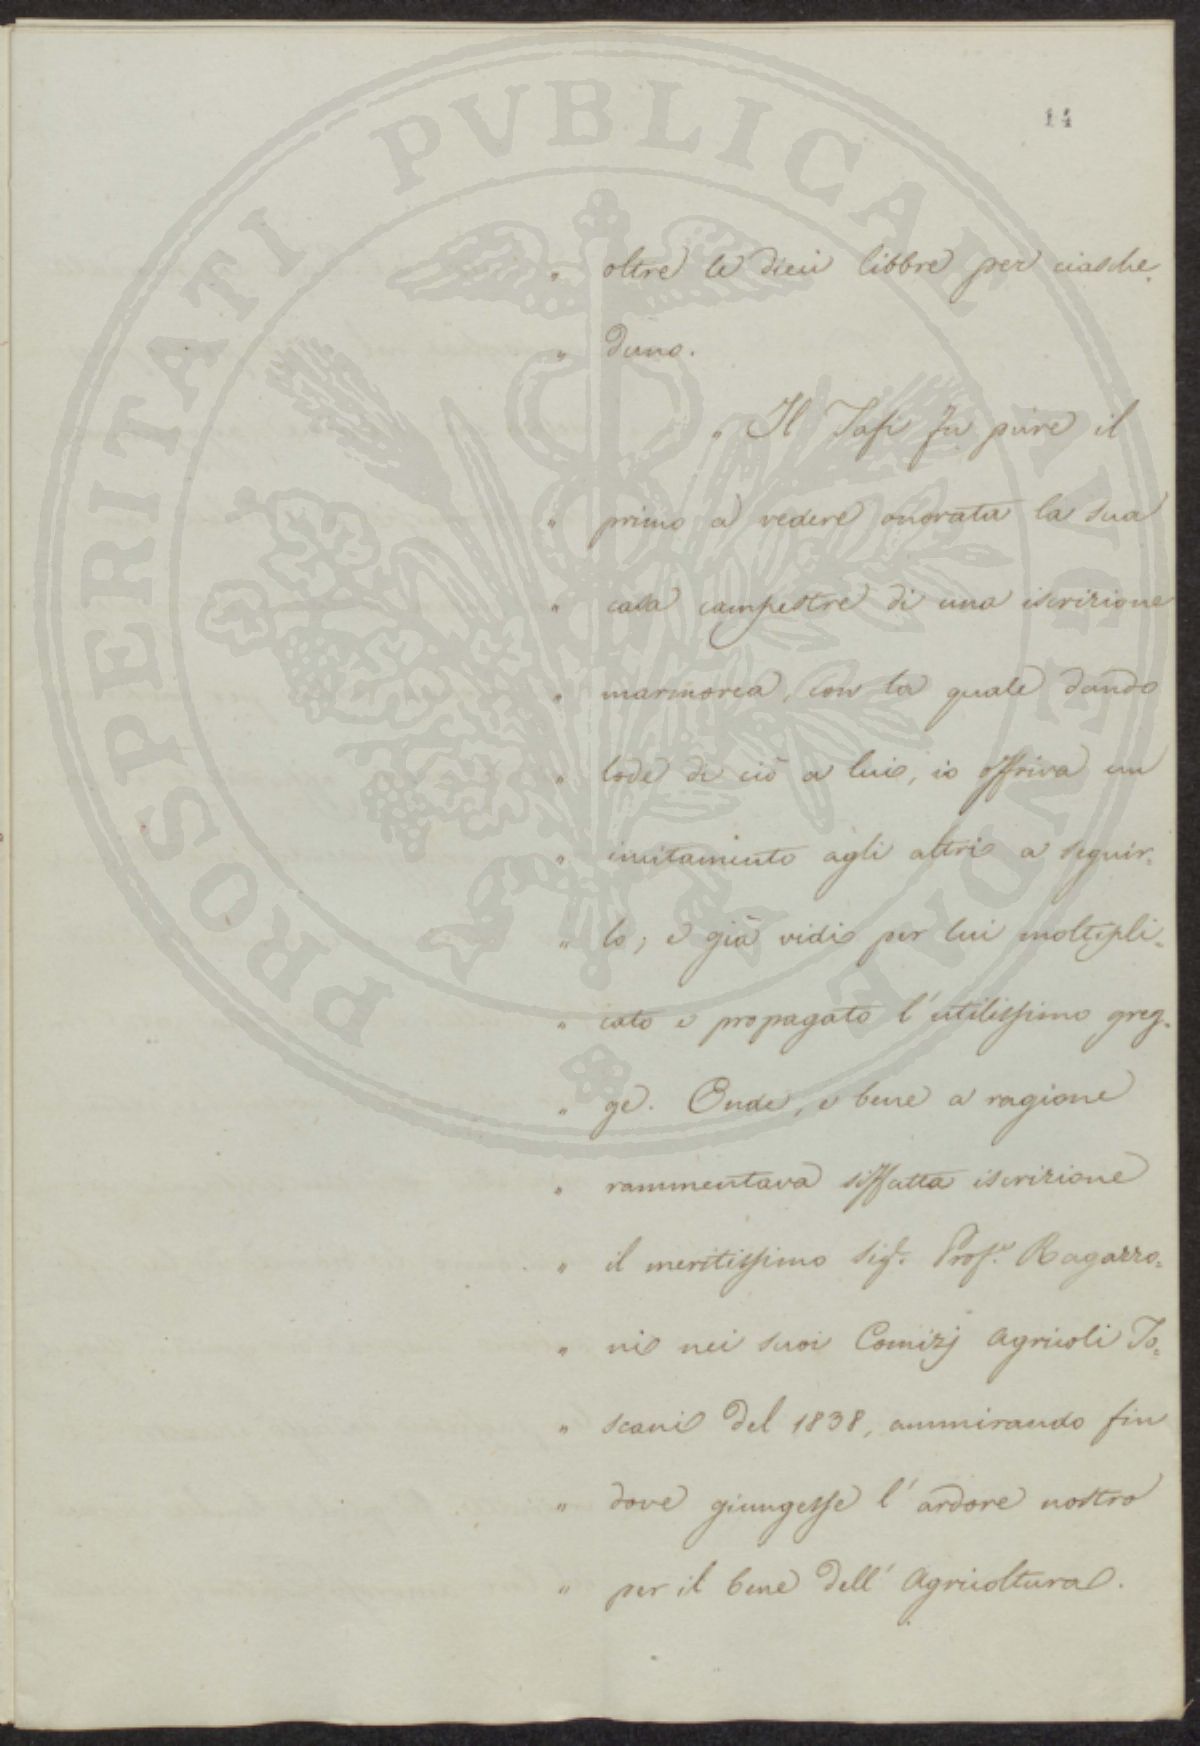 14
" oltre le dieci libbre per ciasche=
" duno.
" Il Tasi fu pure il
" primo a vedere onorata la sua
" casa campestre di una iscrizione
" marmorea, con la quale dando
" lode di ciò a lui, io offriva un
" incitamento agli altri a seguir=
" lo; e già vidi per lui moltipli=
" cato e propagato l'utilissimo greg=
" ge. Onde, e bene a ragione
" rammentava siffatta iscrizione
" il meritissimo Sig.r Prof.e Ragazzo=
" ni nei suoi Comizj Agricoli To=
" scani del 1838, ammirando fin
" dove giungesse l'ardore nostro
" per il bene dell'Agricoltura.
PROSPERITATI PVBLICAE AVGENDAE